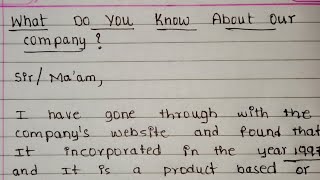 What Do You Know About Our
company ?
Sir/Ma'am,
I have gone through with the
company's website and found that
It incorporated in the year 1997
and It is a product based or